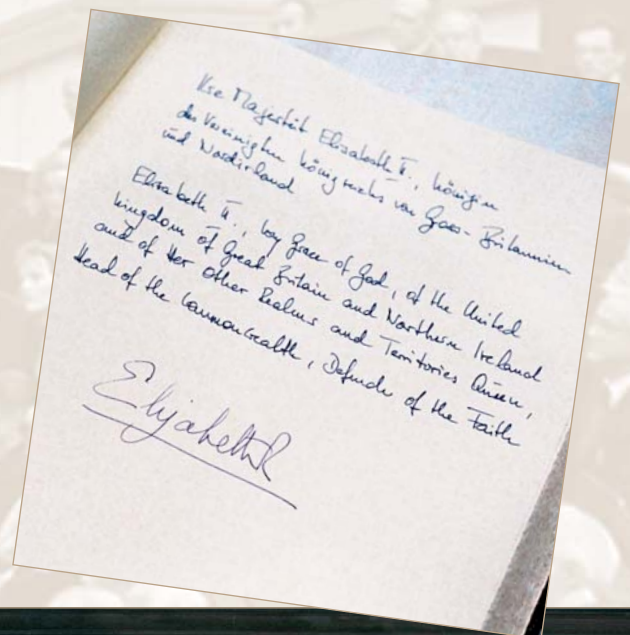 Ihre Majestät Elisabeth II., Königin
des Vereinigten Königreichs von Gross-Britannien
und Nordirland
Elisabeth II., by Grace of God, of the United
Kingdom of Great Britain and Northern Ireland
and of Her Other Realms and Territories Queen,
Head of the Commonwealth, Defender of the Faith
Elizabeth R